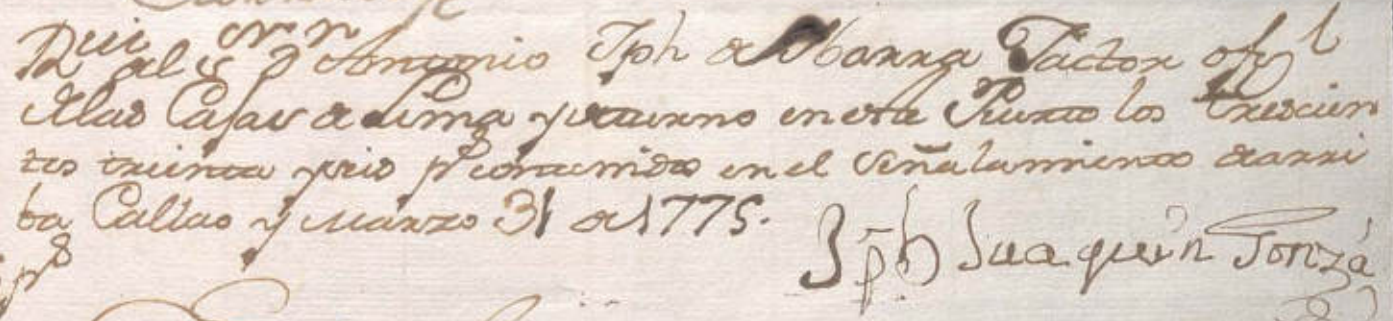 Rcui del Sr Dn Antonio Jph de Ybarra Factor ofizl
delas Cajas de Lima y en este Puerto los trescien
tos treinta y seis ps contenidos en el señalamiento dearri
ba Callao y Marzo 31 de 1775.
Jph Juaquin Gonzá
ps